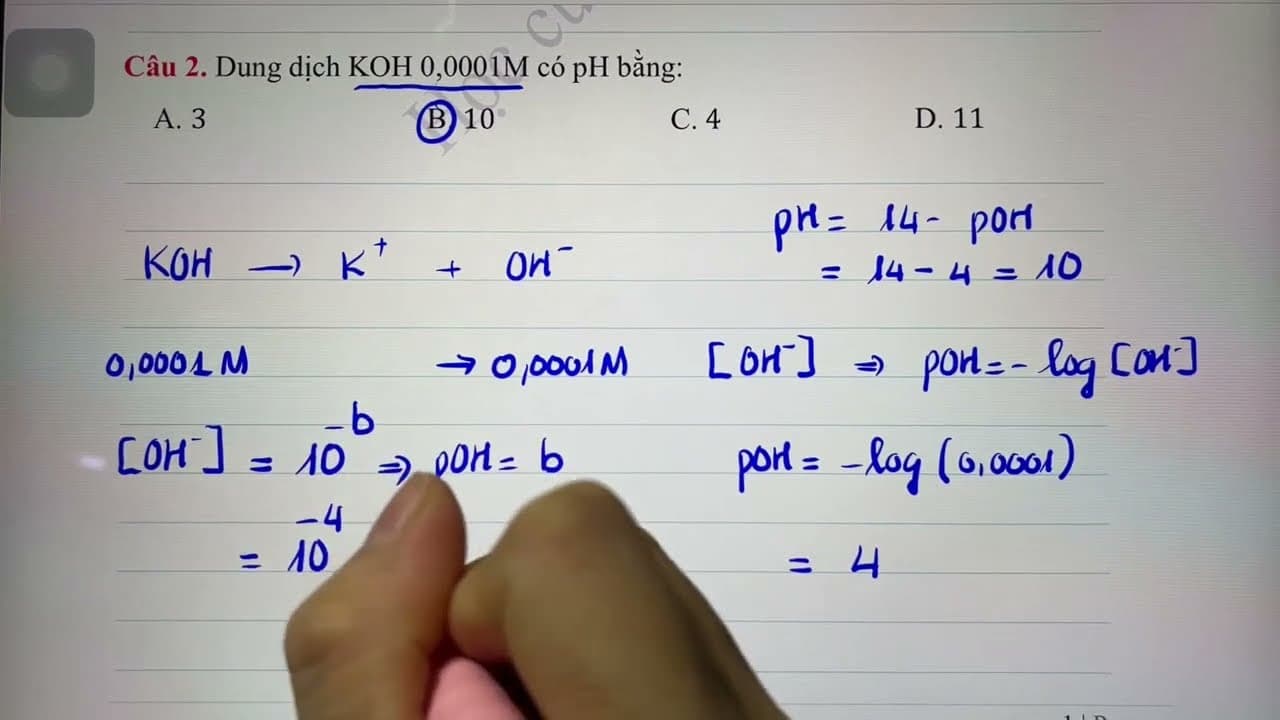 Học
Câu 2. Dung dịch KOH 0,0001M có pH bằng:
A. 3 B 10 C. 4 D. 11
pH = 14 - pOH
= 14 - 4 = 10
KOH → K⁺ + OH⁻
0,0001M → 0,0001M
[OH⁻] ⇒ pOH = - log [OH⁻]
[OH⁻] = 10⁻ᵇ ⇒ pOH = b
= 10⁻⁴
pOH = -log (0,0001)
= 4